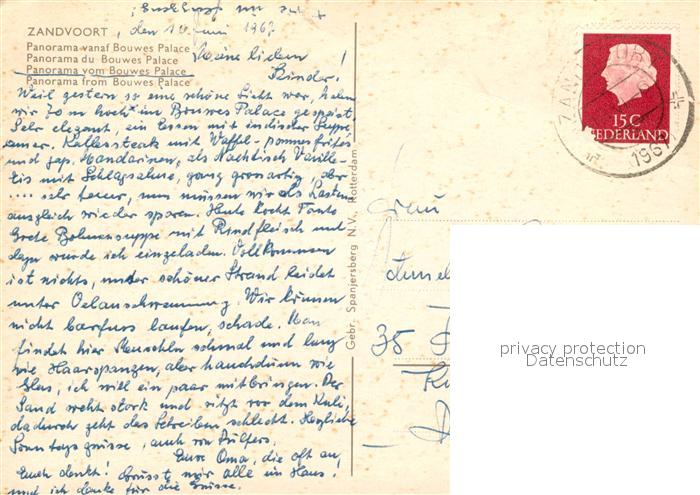 ZANDVOORT, den 10. Juni 1967
Panorama vanaf Bouwes Palace
Panorama du Bouwes Palace
Panorama vom Bouwes Palace
Panorama from Bouwes Palace
Meine lieben
Kinder!
Weil gestern so eine schöne Sicht war, haben
wir 70 m hoch im Bouwes Palace gespeist.
Sehr elegant, ein Essen mit indischer Suppe,
Kalbssteak mit Waffel-pommes frites
und jap. Mandarinen, als Nachtisch Vanille-
eis mit Schlagsahne, ganz grossartig, aber
.... sehr teuer, nun müssen wir als Lasten
ausgleich wieder sparen. Heute kocht Tante
Grete Bohnensuppe mit Rindfleisch und
dazu wurde ich eingeladen. Vollkommen
ist nichts, unser schöner Strand leidet
unter Oelanschwemmung. Wir können
nicht barfuss laufen, schade. Man
findet hier Muscheln schmal und lang
wie Haarspangen, aber hauchdünn wie
Glas, ich will ein paar mitbringen. Der
Sand weht stark und sitzt vor dem Kuli,
dadurch geht das Schreiben schlecht. Herzliche
Sonntagsgrüsse, auch von
Eure Oma, die oft an
Euch denkt! Grüsst mir alle im Haus!
und ich danke für die Grüsse.
Gebr. Spanjersberg N.V. Rotterdam
15 C
NEDERLAND
1967
Frau
35
privacy protection
Datenschutz